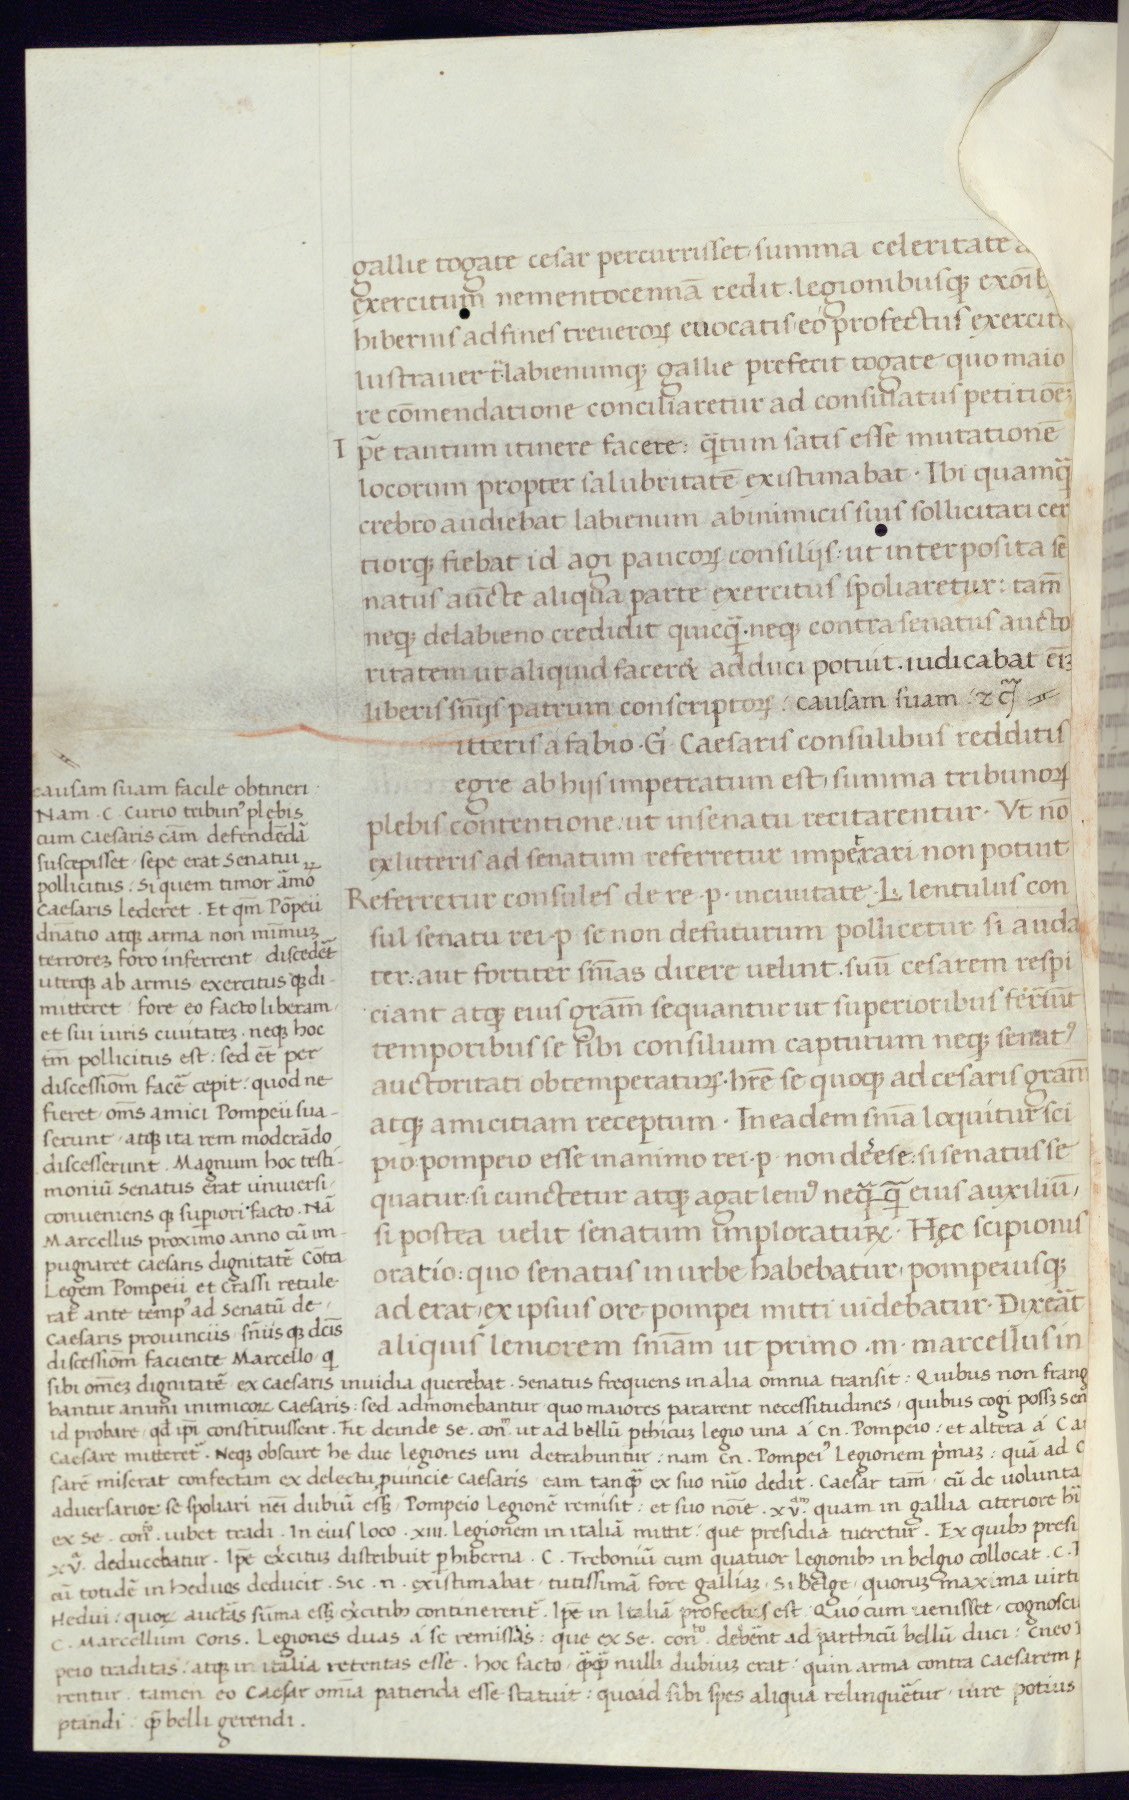 gallie togate cesar percurrisset, summa celeritate a
exercitum nementocennā redit. legionibusqꝫ exoīb
hibernis ad fines treuerorꝫ euocatis, eo profectus exerciti
lustrauer t̄. labienumqꝫ gallie prefecit togate quo maio
re cōmendatione conciliaretur ad consulatus petitiōeꝫ
Ip̄e tantum itinere facere: q̄tum satis esse mutationē
locorum propter salubritatē existimabat. Ibi quamq̄
crebro audiebat labienum ab inimicis suis sollicitari cer
tiorqꝫ fiebat id agi paucorꝫ consilijs: ut interposita se
natus aūcte aliqua parte exercitus spoliaretur: tam̄
neqꝫ de labieno credidit quicq̄. neqꝫ contra senatus aucto
ritatem ut aliquid faceret adduci potuit. iudicabat en̄ꝫ
liberis sn̄ijs patrum conscriptorꝫ: causam suam: ⁊c̄
itteris a fabio. G. Caesaris consulibus redditis
egre ab hijs impetratum est, summa tribunorꝫ
plebis contentione: ut in senatu recitarentur. Vt nō
ex litteris ad senatum referretur impetrari non potuit
Referretur consules de re .p. in ciuitate. L. lentulus con
sul senatu rei .p. se non defuturum pollicetur si auda
ter: aut fortiter sn̄ias dicere uelint. suū cesarem respi
ciant atqꝫ eius grām sequantur ut superioribus fer̄int
temporibus se sibi consilium capturum neqꝫ senatꝰ
auctoritati obtemperaturꝫ. hr̄e se quoqꝫ ad cesaris grām̄
atqꝫ amicitiam receptum. In eadem sn̄ia loquitur sci
pio: pompeio esse in animo rei .p. non deesse: si senatus se
quatur: si cunctetur atqꝫ agat leniꝰ neq̄q̄ eius auxiliū,
si postea uelit senatum imploraturꝫ. Hęc scipionis
oratio: quo senatus in urbe habebatur, pompeiusqꝫ
ad erat, ex ipsius ore pompei mitti uidebatur. Dixeāt
aliquis leniorem sn̄iam ut primo .m. marcellus in
causam suam facile obtineri.
Nam .C. Curio tribunꝰ plebis
cum Caesaris cām defendēdā
suscepisset. sepe erat Senatui
pollicitus: Si quem timor āmo
Caesaris lederet. Et qm̄ Pōpeii
dn̄atio atqꝫ arma non minimuꝫ
terroreꝫ foro inferrent. discedēt
uterqꝫ ab armis. exercitus qꝫ di
mitteret. fore eo facto liberam.
et sui iuris ciuitateꝫ. neqꝫ hoc
tm̄ pollicitus est: sed et̄ per
discessiom̄ facē cepit: quod ne
fieret. om̄s amici Pompeii iua-
serunt. atqꝫ ita rem moderādo
discesserunt. Magnum hoc testi-
moniū Senatus erat uniuersi.
conueniens qꝫ superiori facto. Nā
Marcellus proximo anno cū im-
pugnaret caesaris dignitatē Cōtra
Legem Pompeii et Crassi retule-
rat ante tempꝰ ad Senatū de.
Caesaris prouinciis. sn̄iis qꝫ dc̄is
discessiom̄ faciente Marcello. q
sibi om̄eꝫ dignitatē ex Caesaris inuidia querebat. Senatus frequens in alia omnia transit: Quibus non frang
bantur animi inimicorꝫ Caesaris: sed admonebantur quo maiores pararent necessitudines, quibus cogi possꝫ sen
id probare. qd̄ ip̄i constituissent. Fit deinde Se. conᵐ. ut ad bellū pthicuꝫ legio una á Cn. Pompeio: et altera á C
Caesare mitteret̄. Neqꝫ obscure he due legiones uni detrahuntur: nam Cn. Pompeiꝰ Legionem p̄maꝫ: quā ad C
sarē miserat confectam ex delectu puincie Caesaris. eam tanqꝫ ex suo nūo dedit. Caesar tam̄. cū de uolunta
aduersariorꝫ se spoliari nei dubiū essꝫ, Pompeio Legionē remisit: et suo nōie .xv̄. quam in gallia citeriore h
ex Se. conᵗᵒ. iubet tradi. In eius loco .xiii. Legionem in italiā mittit: que presidia tueretur. Ex quibꝫ presi
xv̄. deducebatur. Ip̄e ex̄cituꝫ distribuit p hiberna. C. Treboniū cum quatuor Legionibꝫ in belgio collocat. C.
cū totidē in hedues deducit. Sic .n. existimabat. tutissimā fore galliaꝫ. Si belge. quoruꝫ maxima uirt
Hedui: quorꝫ auctās sūma essꝫ ex̄citibꝫ continerent̄. Ip̄e in Italiā profectus est. Quo cum uenisset. cognosci
C. Marcellum Cons. Legiones duas á se remissas: que ex Se. conᵗᵒ. deb̄ent ad parthicū bellū duci: Cneo
peio traditas: atqꝫ in italia retentas esse. hoc facto. q̄q̄ nulli dubiuꝫ erat. quin arma contra Caesarem
rentur. tamen eo Caesar om̄ia patienda esse statuit: quoad sibi spes aliqua relinqueretur. iure potius
ptandi: qꝫ belli gerendi.